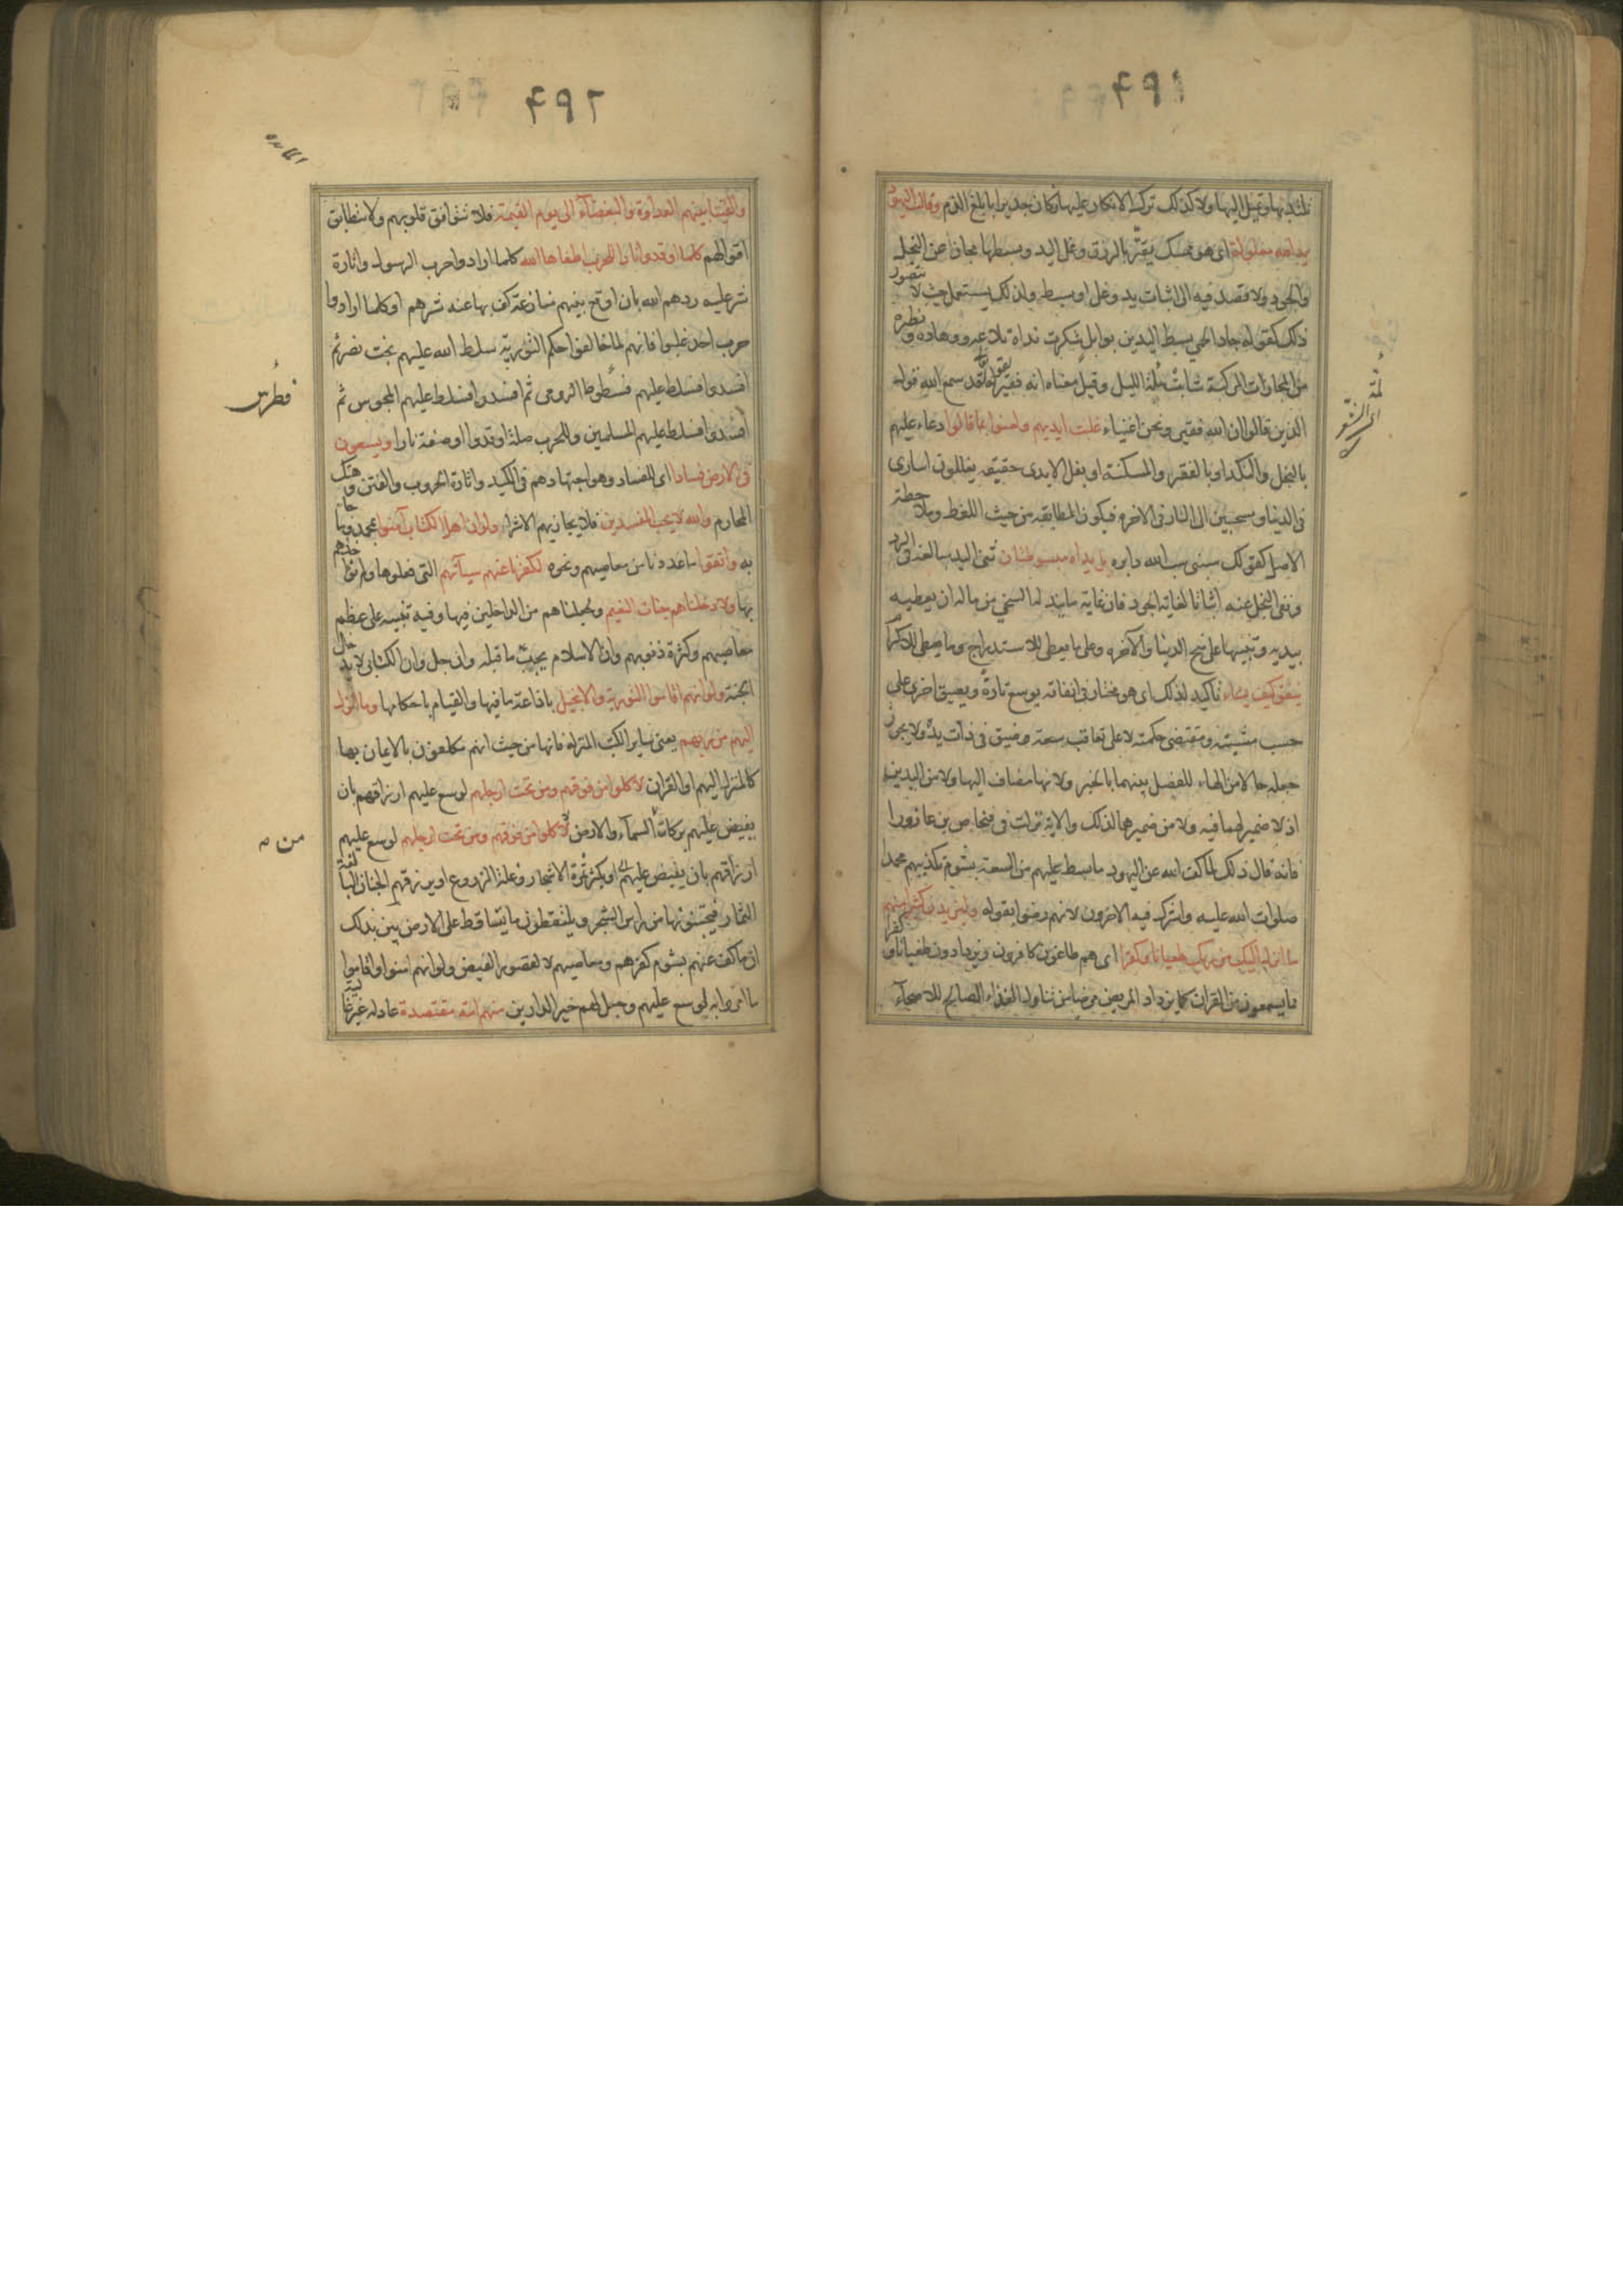 تلتذ بها وتميل اليها ولا كذلك ترك الانكار عليها فكان جديرا بابلغ الذم وقالت اليهود
يد الله مغلولة اى هو ممسك يقتر بالرزق وغل اليد وبسطها مجاز عن البخل
والجود ولا قصد فيه الى اثبات يد وغل او بسط ولذلك يستعمل حيث لا يتصور
ذلك كقوله جاد الحمى بسط اليدين بوابل شكرت نداه تلاعه ووهاده ونظيره
من المجازات المركبة شابت لمة الليل وقيل معناه انه فقير لقوله لقد سمع الله قول
الذين قالوا ان الله فقير ونحن اغنياء غلت ايديهم ولعنوا بما قالوا دعاء عليهم
بالبخل والنكد او بالفقر والمسكنة او بغل الايدى حقيقة يغللون اسارى
فى الدنيا ومسحبين الى النار فى الاخرة فيكون المطابقة من حيث اللفظ وملاحظة
الاصل كقولك سبنى سب الله دابره بل يداه مبسوطتان ثنى اليد مبالغة فى الرد
ونفى البخل عنه اثباتا لغاية الجود فان غاية ما يبذله السخى من ماله ان يعطيه
بيديه وتنبيها على منح الدنيا والآخرة وعلى ما يعطى للاستدراج وما يعطى للاكرام
ينفق كيف يشاء تاكيد لذلك اى هو مختار فى انفاقه يوسع تارة ويضيق اخرى على
حسب مشيته ومقتضى حكمته لا على تعاقب سعة وضيق فى ذات يد ولا يجوز
جعله حالا من الهاء للفصل بينهما بالخبر ولانها مضاف اليها ولا من اليدين
اذ لا ضمير لهما فيه ولا من ضميرهما لذلك والاية نزلت فى فنحاص بن عازورا
فانه قال ذلك لما كف الله عن اليهود ما بسط عليهم من السعة بشوم تكذيبهم محمدا
صلوات الله عليه واشرك فيه الاخرون لانهم رضوا بقوله وليزيدن كثيرا منهم
ما انزل اليك من ربك طغيانا وكفرا اى هم طاغون كافرون ويزدادون طغيانا وكفرا
بما يسمعون من القران كما يزداد المريض مرضا من تناول الغذاء الصالح للاصحآء
والقينا بينهم العداوة والبغضآء الى يوم القيمة فلا تتوافق قلوبهم ولا يتطابق
اقوالهم كلما اوقدوا نارا للحرب اطفاها الله كلما ارادوا حرب الرسول واثارة
شر عليه ردهم الله بان اوقع بينهم منازعة كف بها عنه شرهم او كلما ارادوا
حرب احد غلبوا فانهم لما خالفوا حكم التورية سلط الله عليهم بخت نصر ثم
افسدوا فسلط عليهم فسطوطا الرومى ثم افسدوا فسلط عليهم المجوس ثم
فطرس
افسدوا فسلط عليهم المسلمين وللحرب صلة اوقدوا او صفة نارا ويسعون
فى الارض فسادا اى للفساد وهو اجتهادهم فى الكيد واثارة الحروب والفتن وهتك
المحارم والله لا يحب المفسدين فلا يجازيهم الا شرا ولو ان اهل الكتاب آمنوا بمحمد وبما جا
به واتقوا ما عددنا من معاصيهم ونحوه لكفرنا عنهم سيآتهم التى فعلوها ولم نؤاخذهم
بها ولادخلناهم جنات النعيم ولجعلناهم من الداخلين فيها وفيه تنبيه على عظم
معاصيهم وكثرة ذنوبهم وان الاسلام يجب ما قبله وان جل وان الكتابى لا يدخل
الجنة ولو انهم اقاموا التورية والانجيل باذاعة ما فيها والقيام باحكامها وما انزل
اليهم من ربهم يعنى ساير الكتب المنزلة فانها من حيث انهم مكلفون بالايمان بها
كالمنزل اليهم او القران لاكلوا من فوقهم ومن تحت ارجلهم لوسع عليهم ارزاقهم بان
يفيض عليهم بركات السمآء والارض لاكلوا من فوقهم ومن تحت ارجلهم لوسع عليهم
من
ارزاقهم بان يفيض عليهم او يكثر ثمرة الاشجار وغلة الزروع او يرزقهم الجنان اليانعة
الثمار فيجتنونها من راس الشجر ويلتقطون ما يتساقط على الارض بين بذلك
ان ما كف عنهم بشوم كفرهم ومعاصيهم لا لقصور الفيض ولو انهم امنوا واقاموا
ما امروا به لوسع عليهم وجعل لهم خير الدارين منهم امة مقتصدة عادلة غير غالية